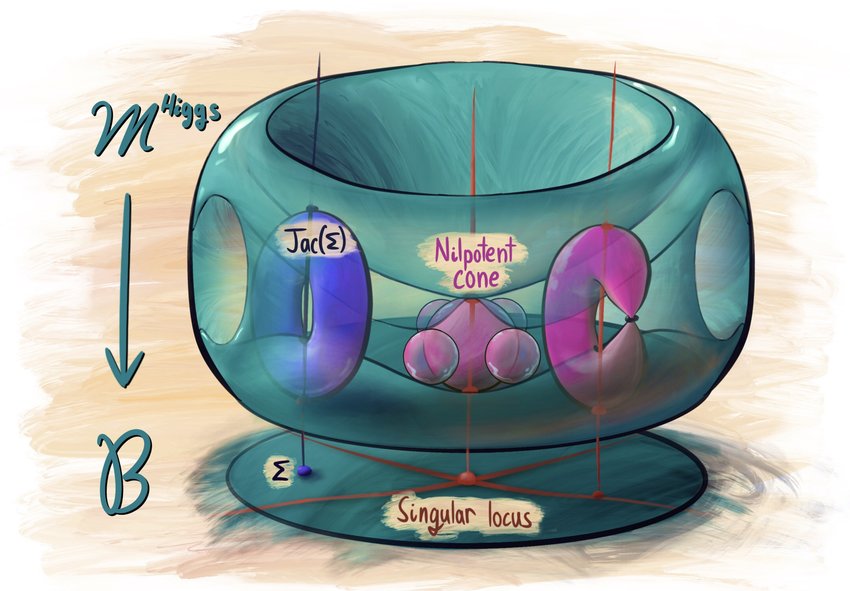 M^Higgs
Jac(Σ)
Nilpotent
cone
B
Σ
Singular locus